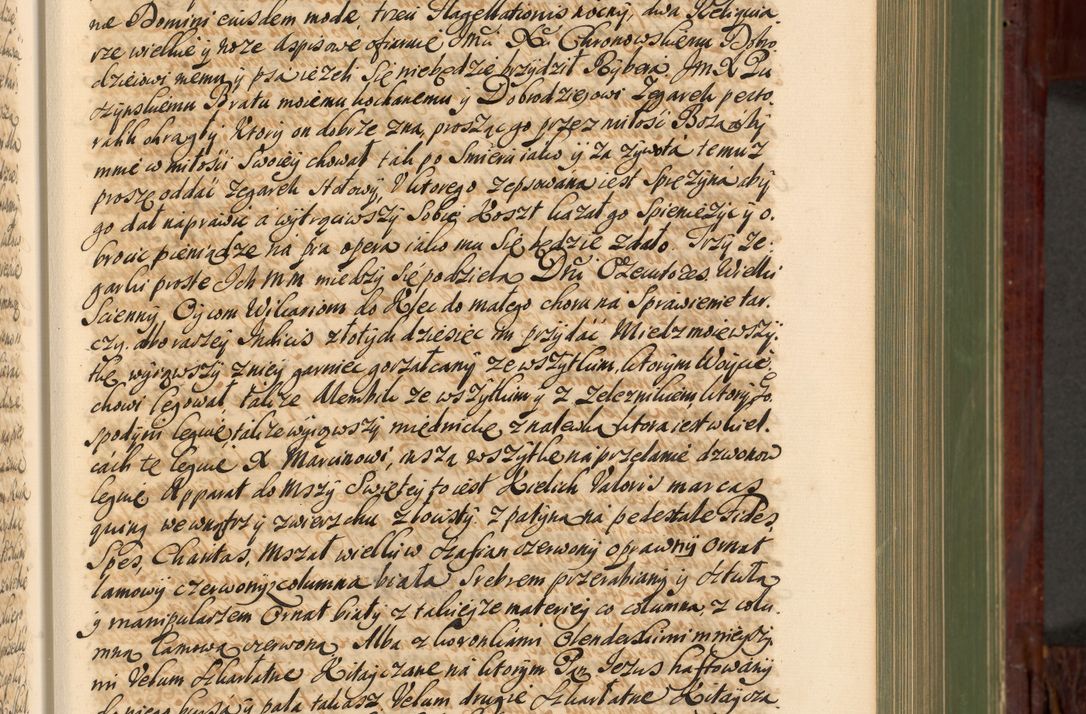 næ Domini eiusdem modæ, trzeci Flagellationis nocny, dwa Reliquia
rze wielkie y noze dspisowe ofiaruię Jmći Xu Chronowskiemu Dobro
dzieiowi memu y psa ieżeli Się niebędzie brzydził Rybera. Jm X Pu
Bratu moiemu kochanemu y Dobrodzieiowi Zegarek pecto
ralik okrągły, Ktory on dobrze zna, prosząc go przez miłość Bozą aby
mnie w miłości Swoiey chował tak po Smierci iako y za zywota temuz
proszę oddać zegarek stołowy, V ktorego zepsowana iest Sprężyna aby
go dał naprawić a wytrąciwszy Sobie Koszt kazał go Spieniężyć y o,
brocić pieniądze na pia opera iako mu Się będzie zdało. Trzy ze,
garki proste Ich mm między Się podzielą Dni Exequtores. Wielki
Scienny Oycom Wikariom do Kielc do małego choru na Sprawienie tar,
czy, albo raszey Indicis złotych dziesięć im przydać. Miedz moię wszy,
tkę wyiąwszy z niey garniec gorzałcany ze wszytkim, ktorym Woycie,
chowi legował, także Alembik ze wszytkim y z zeleznikiem, ktory Go,
spodyni leguię, także wyiąwszy miednicę z nalewką ktora iest w Kiel,
cach tę leguię X Marcinowi, insza wszytkę na przelanie dzwonow
leguię. Apparat do Mszy Swiętey to iest Kielich Valoris marcas
quinq wewnątrz y zwierzchu złocisty z patyną na pedestale Fides,
Spes, Charitas, Mszał wielki w szafian czerwony oprawny Ornat
lamowy czerwony columna biała Srebrem przerabiany y z stułą
y manipularzem Ornat biały z takieyze materiey co columna, z colu
mną lamową czerwoną, Alba z koronkami Olenderskimi mnieyszy
mi Velum szkarłatne Kitayczane na ktorym Pan Jezus haftowany
do niego bursa y pala takasz Velum drugie szkarłatne Kitaycza,